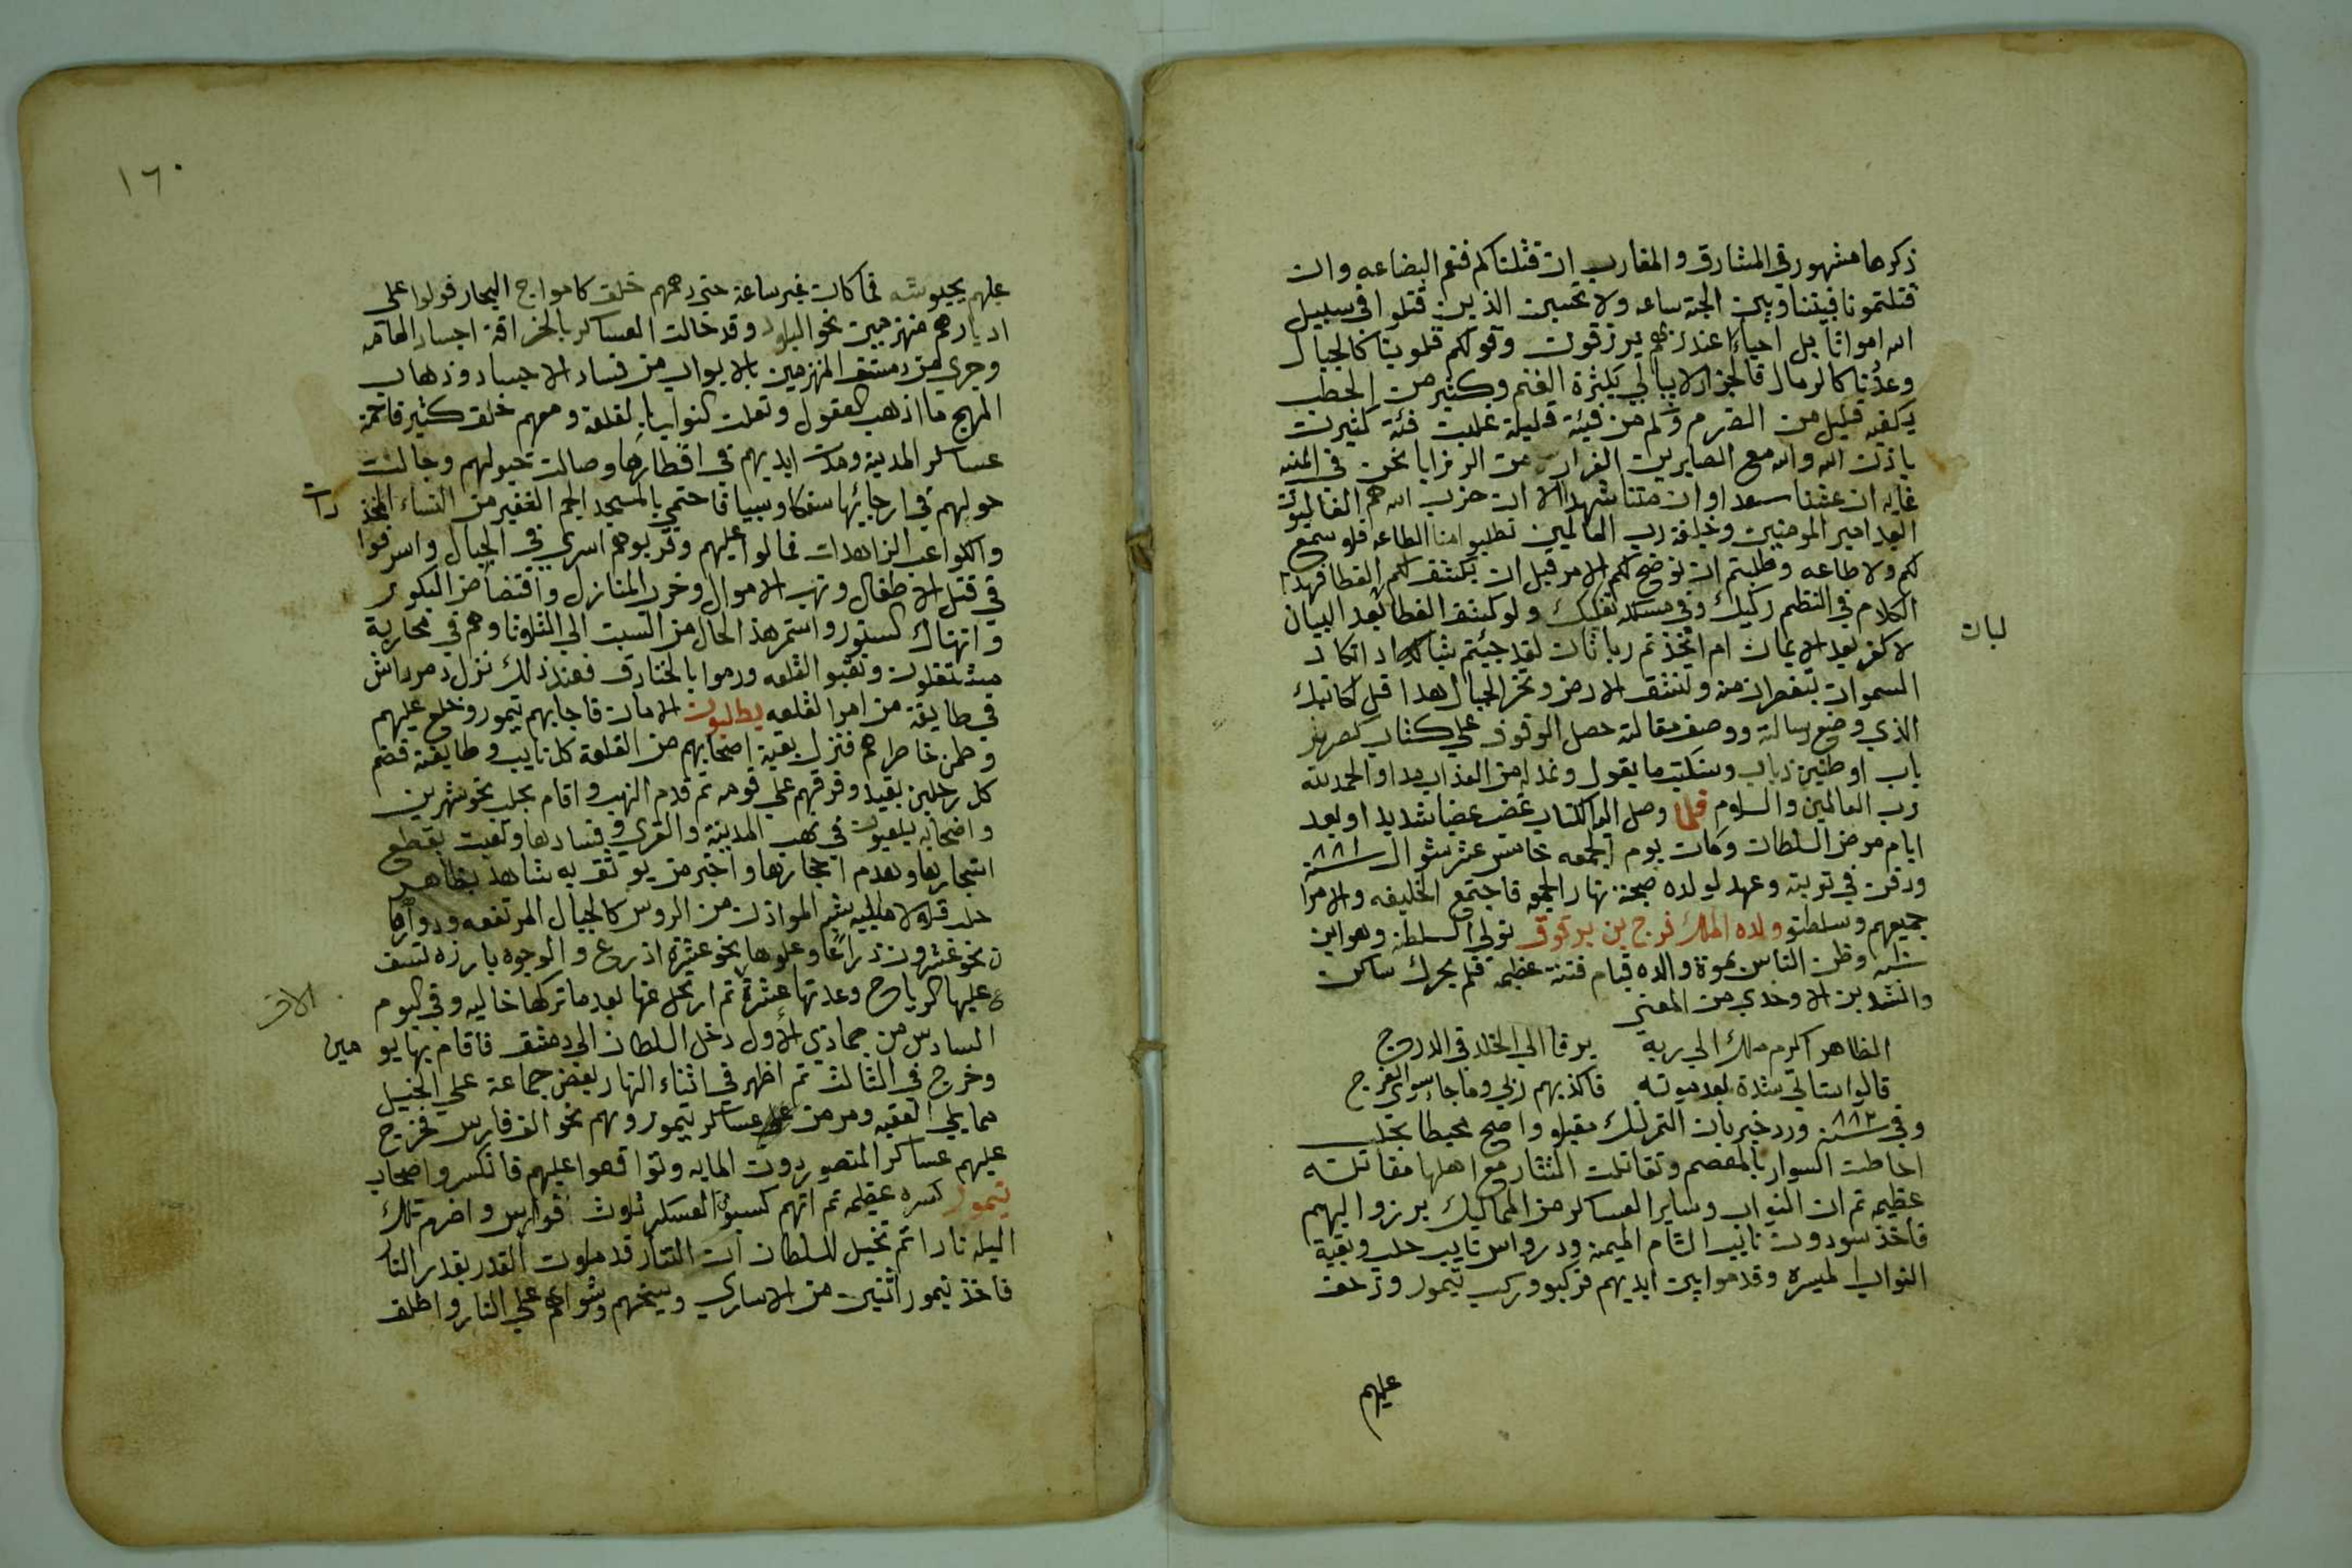 ذكرها مشهور في المشارق والمغارب ان قتلناكم فنعم البضاعه وان
قتلتمونا فبيننا وبين الجنة ساعه ولا تحسبن الذين قتلوا في سبيل
الله امواتا بل احياء عند ربهم يرزقون وقولكم قلوبنا كالجبال
وعددنا كالرمال فالجزار لا يبالي بكثرة الغنم وكثير من الحطب
يكفيه قليل من الضرم وكم من فيئة قليلة غلبت فئة كثيرت
باذن الله والله مع الصابرين الفرار من الرزايا نحن في المنيه
غايه ان عشنا سعدا وان متنا شهدا الا ان حزب الله هم الغالبون
ابعد امير المومنين وخليفة رب العالمين تطلبوا منا الطاعه فلا سمع
لكم ولا طاعه وطلبتم ان نوضح لكم الامر قبل ان يكشف لكم الغطا فهذا
الكلام في النظم ركيك وفي مسلكه تفكيك ولو كشف الغطا بعد البيان
لبان
لا كفر بعد الايمان ام اتخذتم ربا ثان لقد جيئتم شيا ادا تكاد
السموات يتفطرن منه وتنشق الارض وتخر الجبال هدا قل لكاتبك
الذي وضع رسالته ووصف مقالته حصل الوقوف علي كتاب كصرير
باب او طنين ذباب وسنكتب ما يقول ونمد له من العذاب مدا والحمد لله
رب العالمين والسلام فلما وصل اليه الكتاب غضب غضبا شديدا وبعد
ايام مرض السلطان ومات يوم الجمعه خامس عشر شوال سنة ٨٨١
ودفن في توبته وعهد لولده صبحة نهار الجمعه فاجتمع الخليفه والامرا
جميعهم وسلطنو ولده الملك فرج بن برقوق تولي السلطنه وهو ابن
وظن الناس بموته والده قيام فتنة عظيمه فلم يحرك ساكن
وانشد بن الاوحدي من المعني
الظاهر اكرم ملك الي ربه يرقا الي الخلد في الدرج
قالوا ستاتي شدة بعد موته فاكذبهم ربي وما جا سوي الفرج
وفي سنة ٨٨٣ ورد خبر بان التمرلنك مقبلو واصبح محيطا بحلب
احاطت السوار بالمعصم وتقاتلت التتار مع اهلها مقاتلته
عظيمه ثم ان النواب وساير العساكر من المماليك برزوا اليهم
فاخذ سودون نائب الشام الميمنه ودرواس نايب حلب وبقية
النواب الميسره وقدموا بين ايديهم فركبو وركب تيمور وزحف
عليهم
١٦٠
عليهم بجيوشه فما كان غير ساعة حتى دهمهم خلق كامواج البحار فولوا على
ادبارهم منهزمين نحو البلد وقد حالت العساكر اجساد العامه
وجرى من دمشق المنهزمين بالابواب من فساد الاجساد وذهاب
المهج ما اذهب العقول وتعلت النواب بالقلعة ومعهم خلق كثير فاقتحمة
عساكر المدينة ومدت ايديهم في اقطارها وصالت خيولهم وجالت
حولهم في ارجائها سفكا وسبيا فاحتمي بالمسجد الجم الغفير من النساء المخذ
رات
والكواعب الزاهدات فمالوا عليهم وقربوهم اسري في الجبال واسرفوا
في قتل الاطفال ونهب الاموال وخرب المنازل وافتضاض البكور
وانهتاك الستور واستمر هذ الحال من السبت الي الثلوثا وهم في محاربة
مشتغلون ونقبو القلعه ورموا بالخنادق فعند ذلك نزل دمرداش
في طايفة من امرا القلعه يطلبون الامان فاجابهم تيمور وخلع عليهم
وطمن خاطرهم فنزل بقية اصحابهم من القلعة كل نايب وطايفته فضم
كل رجلين بقيد وفرقهم علي قومه ثم قدم النهب واقام بحلب نحو شهرين
واصحابه يلعبون في نهب المدينة والقري وفسادها وتفننت بقطع
اشجارها وهدم احجارها واخبر من يوثق به شاهد بظاهر
حلب المواذن من الروس كالجبال المرتفعه ودوارها
نحو عشرون ذراعا وعلوها نحو عشرة اذرع والوجوه بارزه تسف
عليها الرياح وعدتها عشرة ثم ارتحل عنها بعد ما تركها خاليه وفي اليوم
السادس من جمادي الاول دخل السلطان الي دمشق فاقام بها يو
مين
وخرج في الثالث ثم اظهر في اثناء النهار بعض جماعة علي الخيل
مما يلي العقبه ومرمن عساكر تيمور وهم نحو الف فارس فخرج
عليهم عساكر المنصور دون المايه وتواقعوا عليهم فانكسرو اصحاب
تيمور كسره عظيمه ثم انهم كسبوا العسكر ثلوث فوارس واضرم تلك
اليله نارا ثم تخيل للسلطان ان التتار قد ملوت القدر بقدر النار
فاخذ تيمور اثنين من الاساري وسيخهم وشواهم علي النار واطلق